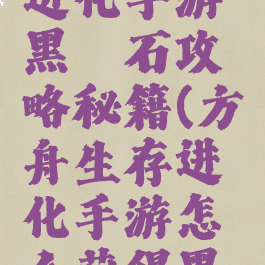 进化手游
黑 石攻
略秘籍(方
舟生存进
化手游怎
么获得黑